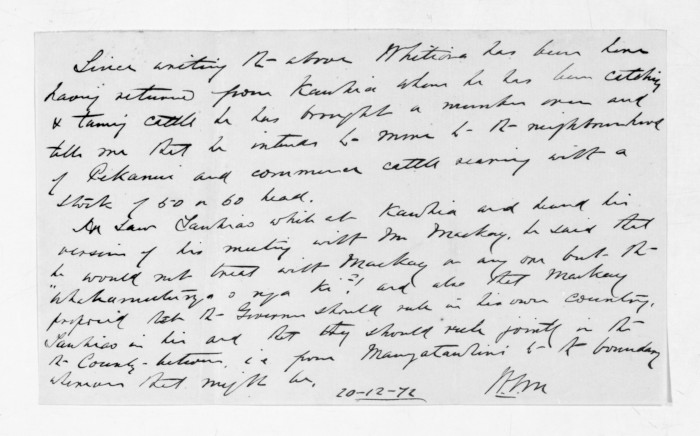 Since writing the above Whitiora has been here
having returned from Kawhia where he has been catching
& taming cattle he has brought a number over and
tells me that he intends to move to the neighbourhood
of Pekanui and commence cattle rearing with a
stock of 50 or 60 head.
He saw Tawhiao while at Kawhia and heard his
version of his meeting with Mr Mackay, he said that
he would not treat with Mackay or any one but the
"Whakamutunga o nga Ki"?! and also that Mackay
proposed that the Governor should rule in his own country,
Tawhiao in his and that they should rule jointly in the
the County between, i.e from Mangatawhiri to the boundary
wherever that might be.
20-12-72